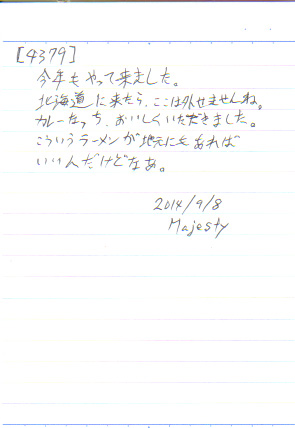 [4379]
今年もやって来ました。
北海道に来たら、ここは外せませんね。
カレーなっち、おいしくいただきました。
こういうラーメンが地元にもあれば
いいんだけどなあ。
2014/9/8
Majesty